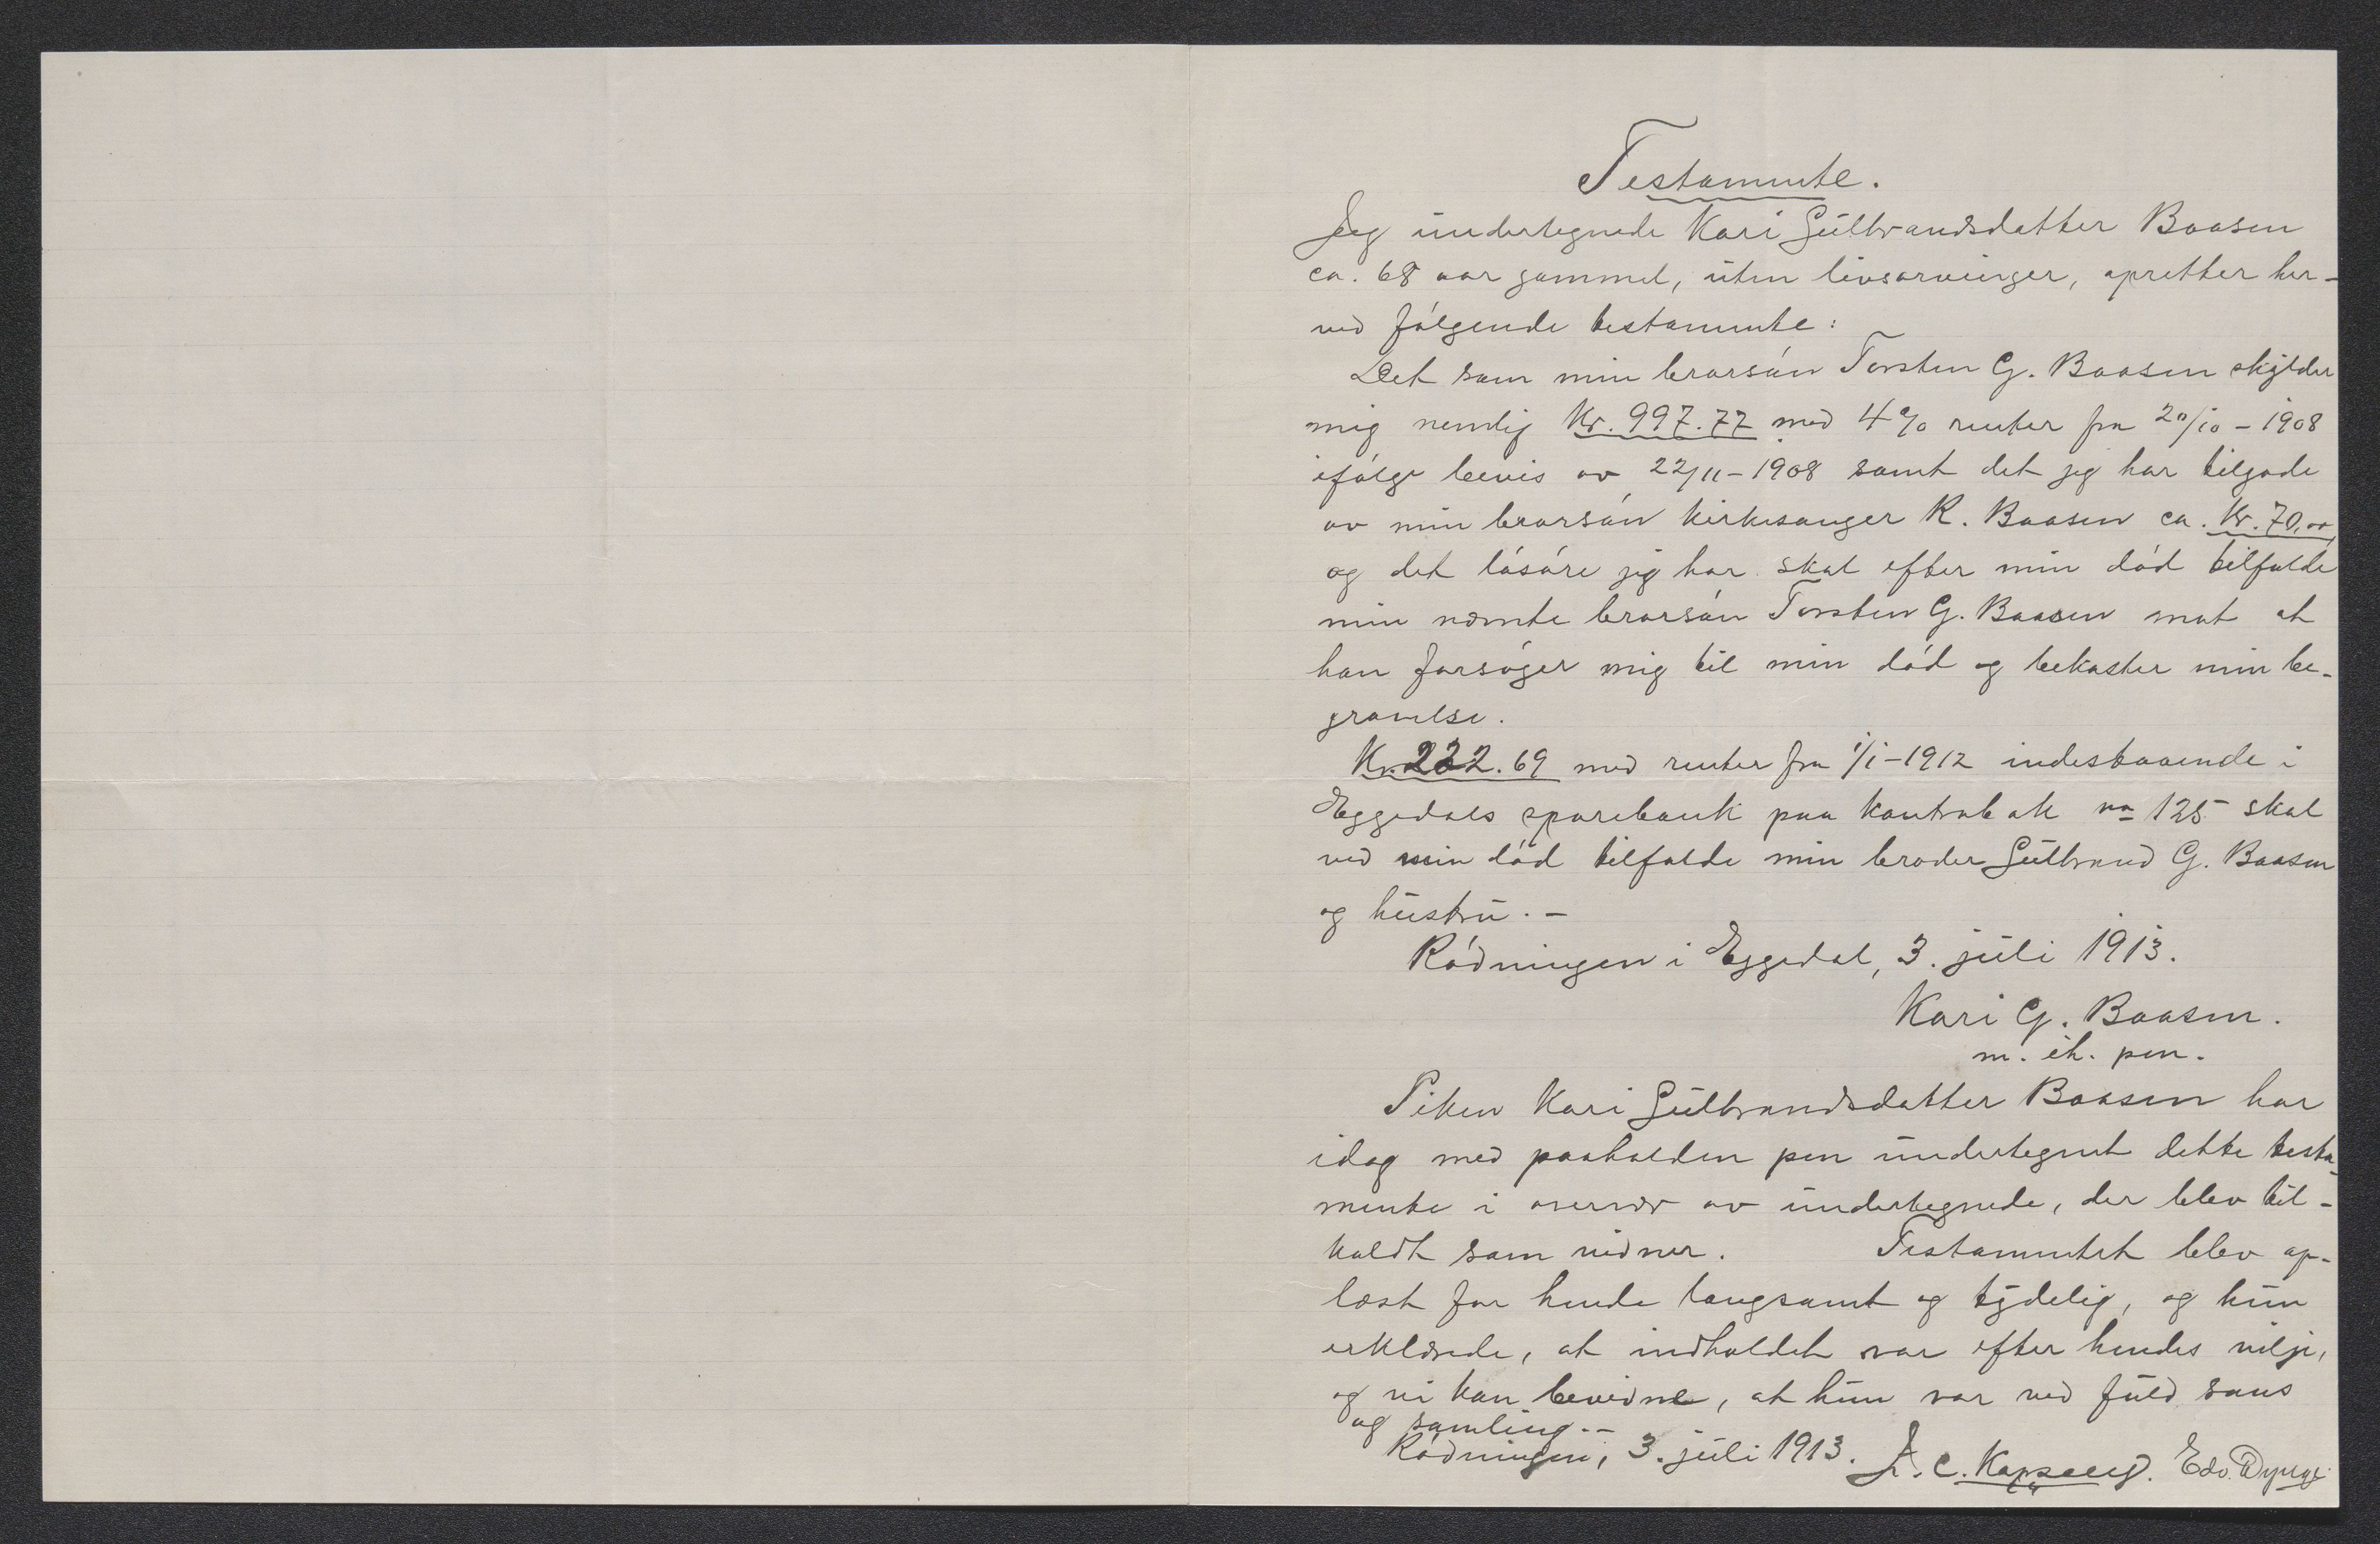 Testamente.
Jeg undertegnede Kari Gulbrandsdatter Baasen
ca. 68 aar gammel, uten livsarvinger, opretter her-
ved følgende testamente:
Det som min brorsøn Torsten G. Baasen skylder
mig nemlig Kr. 997.77 med 4% renter fra 20/10-1908
ifølge bevis av 22/11-1908 samt det jeg har tilgode
av min brorsøn kirkesanger K. Baasen ca. Kr. 70,00
og det løsøre jeg har skal efter min død tilfalde
min nævnte brorsøn Torsten G. Baasen mot at
han forsørger mig til min død og bekoster min be-
gravelse.
Kr. 222.69 med renter fra 1/1-1912 indestaaende i
Eggedals sparebank paa kontrabok no 125 skal
ved min død tilfalde min broder Gulbrand G. Baasen
og hustru. -
Rødningen i Eggedal, 3. juli 1913.
Kari G. Baasen.
m. ih. pen.
Piken Kari Gulbrandsdatter Baasen har
idag med paaholden pen undertegnet dette testa-
mente i overvær av undertegnede, der blev til-
kaldt som vidner. Testamentet blev op-
læst for hende langsamt og tydelig, og hun
erklærede, at indholdet var efter hendes vilje,
og vi kan bevidne, at hun var ved fuld sans
og samling. -
Rødningen, 3. juli 1913. C. Edv.